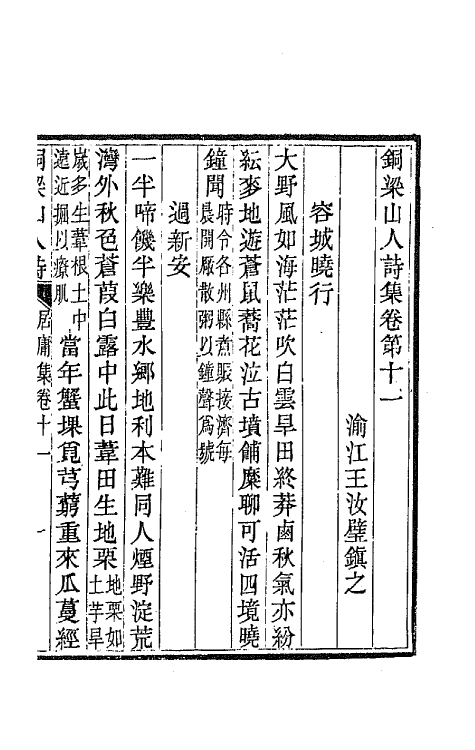 銅梁山人詩集卷第十一
渝江王汝璧鎮之
容城曉行
大野風如海茫茫吹白雲早田終莽鹵秋氣亦紛
紜麥地遊蒼鼠蕎花泣古墳餔糜聊可活四境曉
鐘聞時令各州縣煮賑接濟每晨開廠散粥以鐘聲爲號
過新安
一半啼饑半樂豐水鄉地利本難同人煙野淀荒
灣外秋色蒼葭白露中此日葦田生地栗地栗如土芋旱
歲多生葦根土中遠近掘以療肌當年蟹堁覓芎藭重來瓜蔓經
銅梁山人詩 居庸集卷十一 一